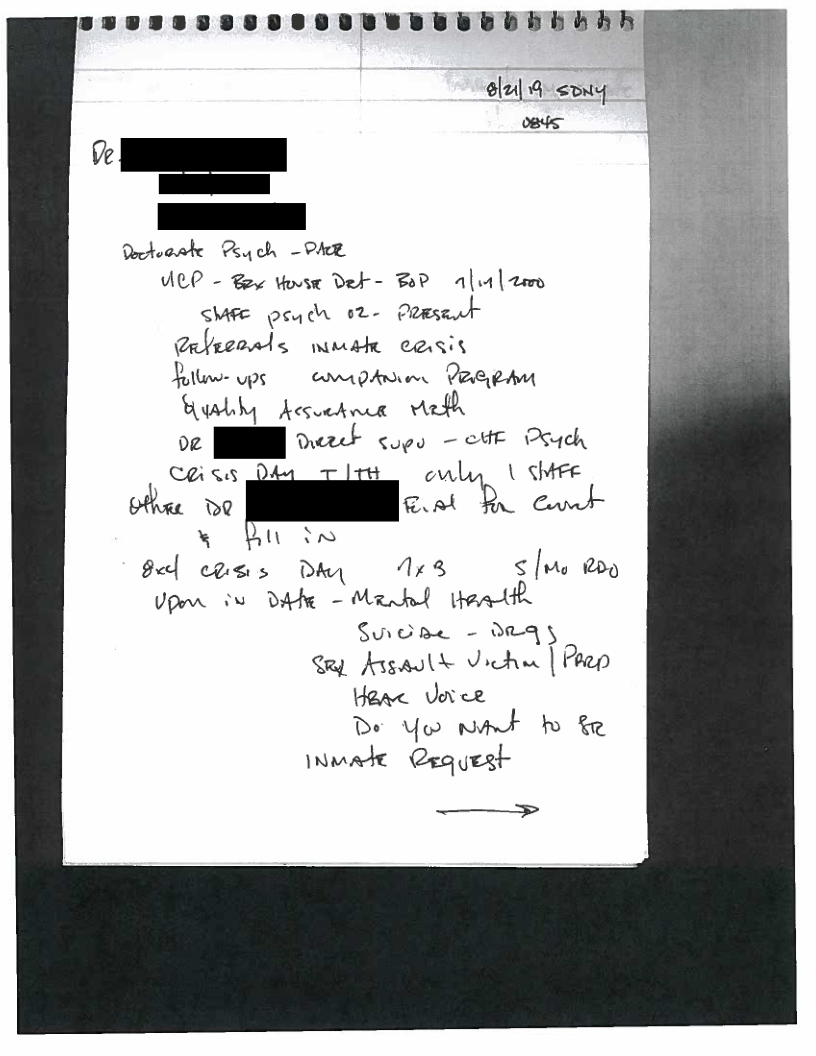 8/21/19 SDNY
0845
Doctorate Psych - PACE
- BOP
Staff psych 02 - Present
Referrals inmate crisis
follow-ups companion Program
Quality Assurance
DR Direct supv - CHF Psych
Crisis Day T/TH only 1 Staff
Other DR for Count
& fill in
crisis Day 5/Mo RDO
Upon in Date - Mental Health
Suicide - Drgs
Sex Assault Victim/Perp
Hear Voice
Do you want to
Inmate Request